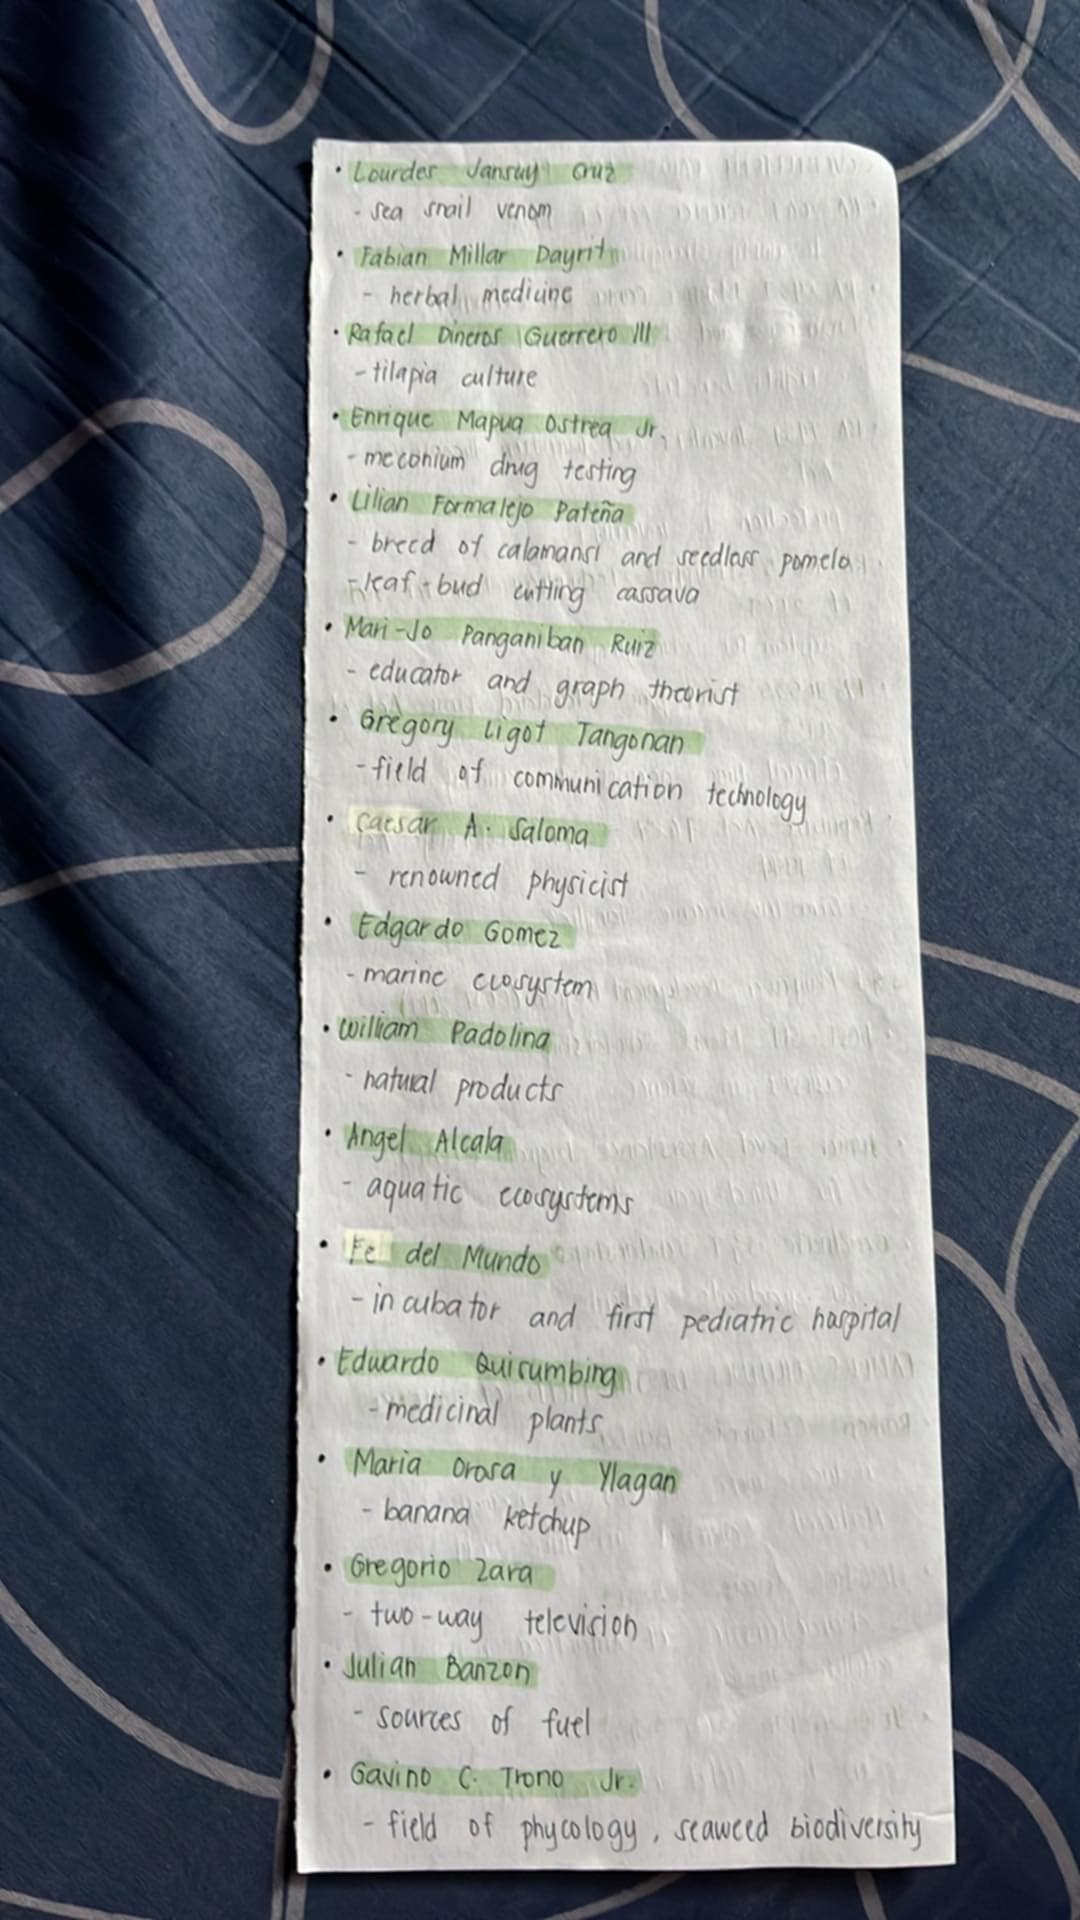 • Lourdes Jansuy Cruz
- sea snail venom
• Fabian Millar Dayrit
- herbal medicine
• Rafael Dineros Guerrero III
- tilapia culture
• Enrique Mapua Ostrea Jr.
- meconium drug testing
• Lilian Formalejo Pateña
- breed of calamansi and seedlass pomelo
- leaf-bud cutting cassava
• Mari-Jo Panganiban Ruiz
- educator and graph theorist
• Gregory Ligot Tangonan
- field of communication technology
• Caesar A. Saloma
- renowned physicist
• Edgardo Gomez
- marine ecosystem
• William Padolina
- natural products
• Angel Alcala
- aquatic ecosystems
• Fe del Mundo
- incubator and first pediatric hospital
• Eduardo Quisumbing
- medicinal plants
• Maria Orosa y Ylagan
- banana ketchup
• Gregorio Zara
- two-way television
• Julian Banzon
- sources of fuel
• Gavino C. Trono Jr.
- field of phycology, seaweed biodiversity